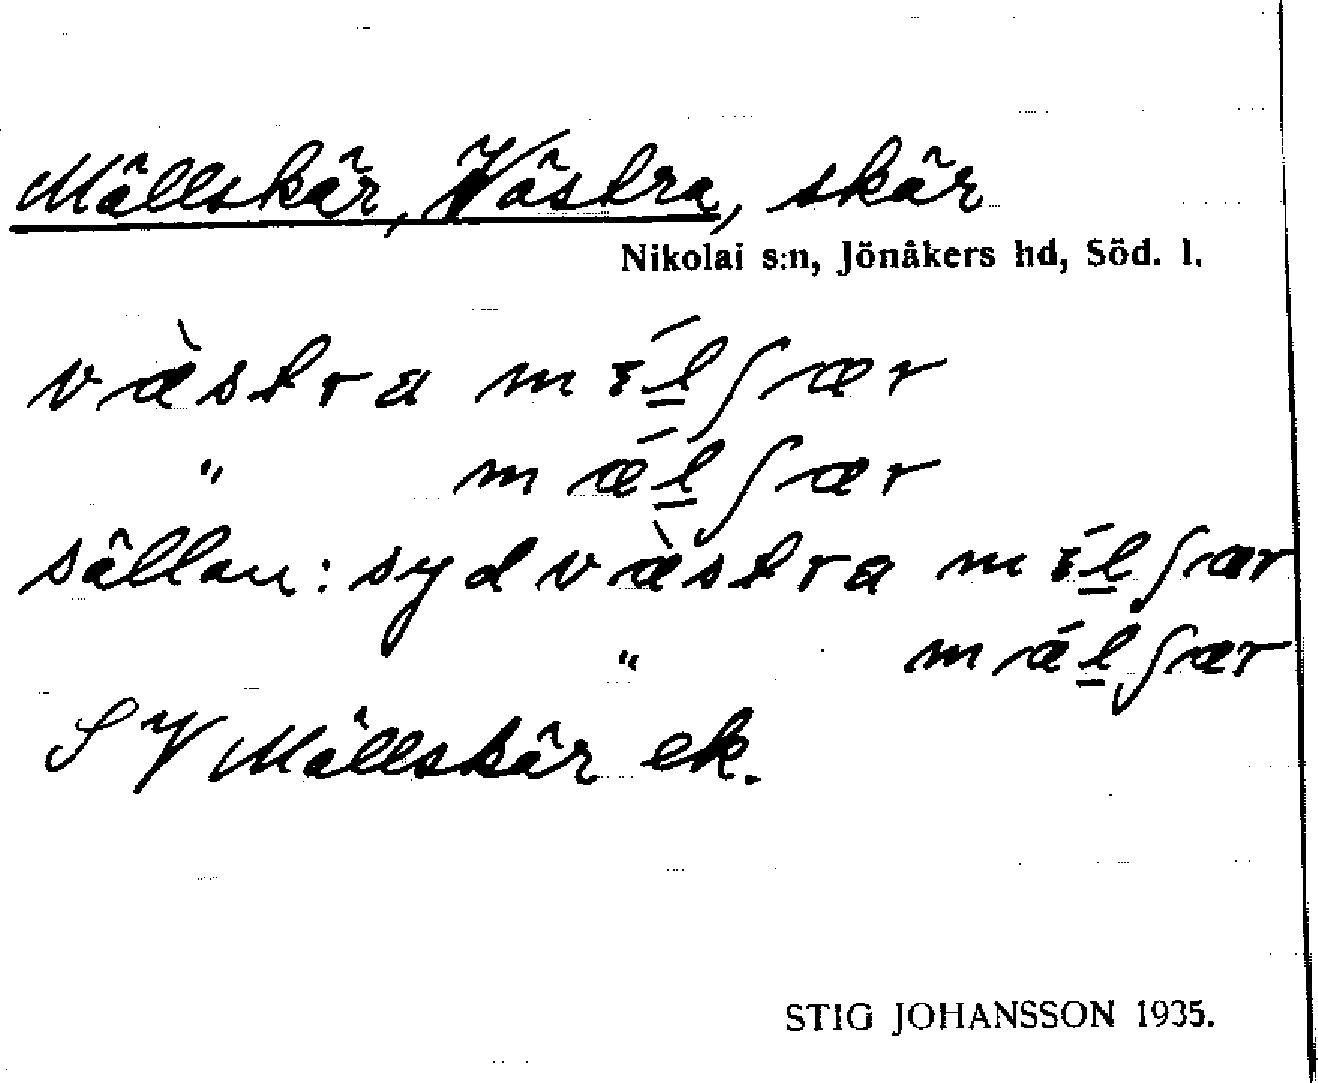 Mällskär, Västra, skär
Nikolai s:n, Jönåkers hd, Söd. l.
væ̀stra mɛ́l̲ʃær
" mǽl̲ʃær
sällan: sydvæ̀stra mɛ́l̲ʃær
" mǽl̲ʃær
SV Mällskär ek.
STIG JOHANSSON 1935.